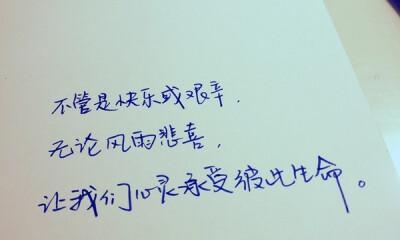 不管是快乐或艰辛，
无论风雨悲喜，
让我们心灵承受彼此生命。